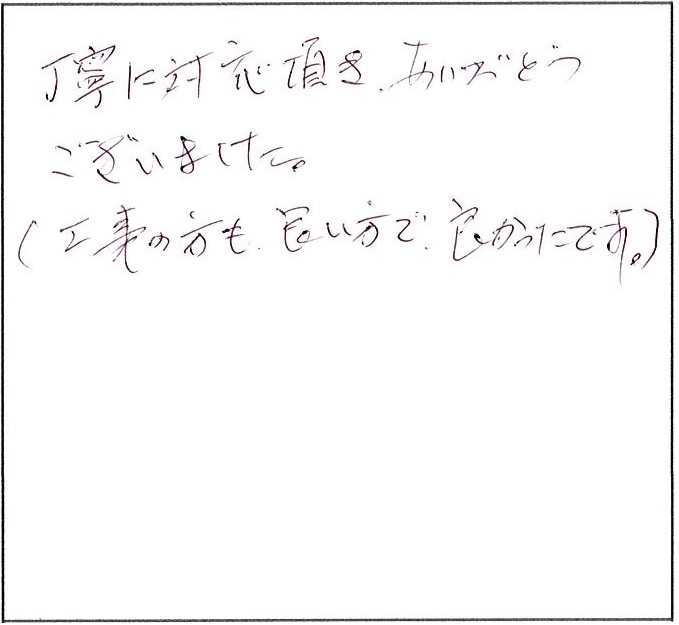 丁寧に対応頂き、ありがとう
ございました。
(工事の方も、良い方で、良かったです。)